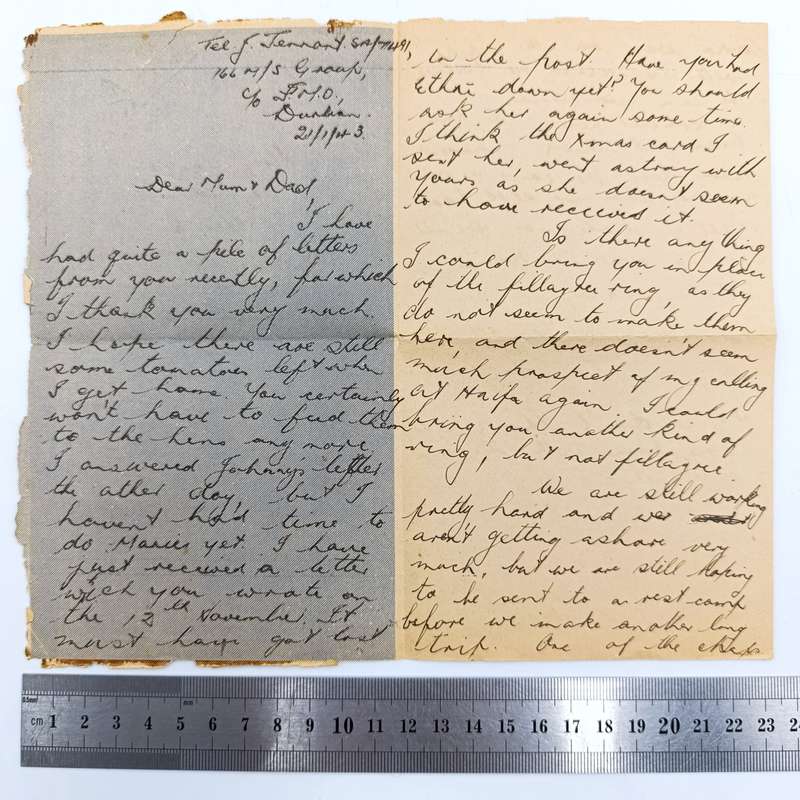 Tel J. Tennant.
166 M/S Group,
c/o F.M.O.,
Durban.
21/1/43.
Dear Mum & Dad,
I have
had quite a pile of letters
from you recently, for which
I thank you very much.
I hope there are still
some tomatoes left when
I get home. You certainly
won't have to feed them
to the hens any more
I answered Johnny's letter
the other day, but I
havent had time to
do Maries yet. I have
just received a letter
wich you wrote on
the 12th November. It
must have got lost
in the post. Have you had
Ethie down yet? You should
ask her again some time.
I think the Xmas card I
sent her, went astray with
yours as she doesn't seem
to have received it.
Is there anything
I could bring you in place
of the fillagree ring, as they
do not seem to make them
here, and there doesn't seem
much prospect of my calling
at Haifa again. I could
bring you another kind of
ring, but not fillagree.
We are still working
pretty hard and
aren't getting ashore very
much, but we are still hoping
to be sent to a rest camp
before we make another long
trip. One of the chaps
cm 1 2 3 4 5 6 7 8 9 10 11 12 13 14 15 16 17 18 19 20 21 22 23 24
0.5mm
mm